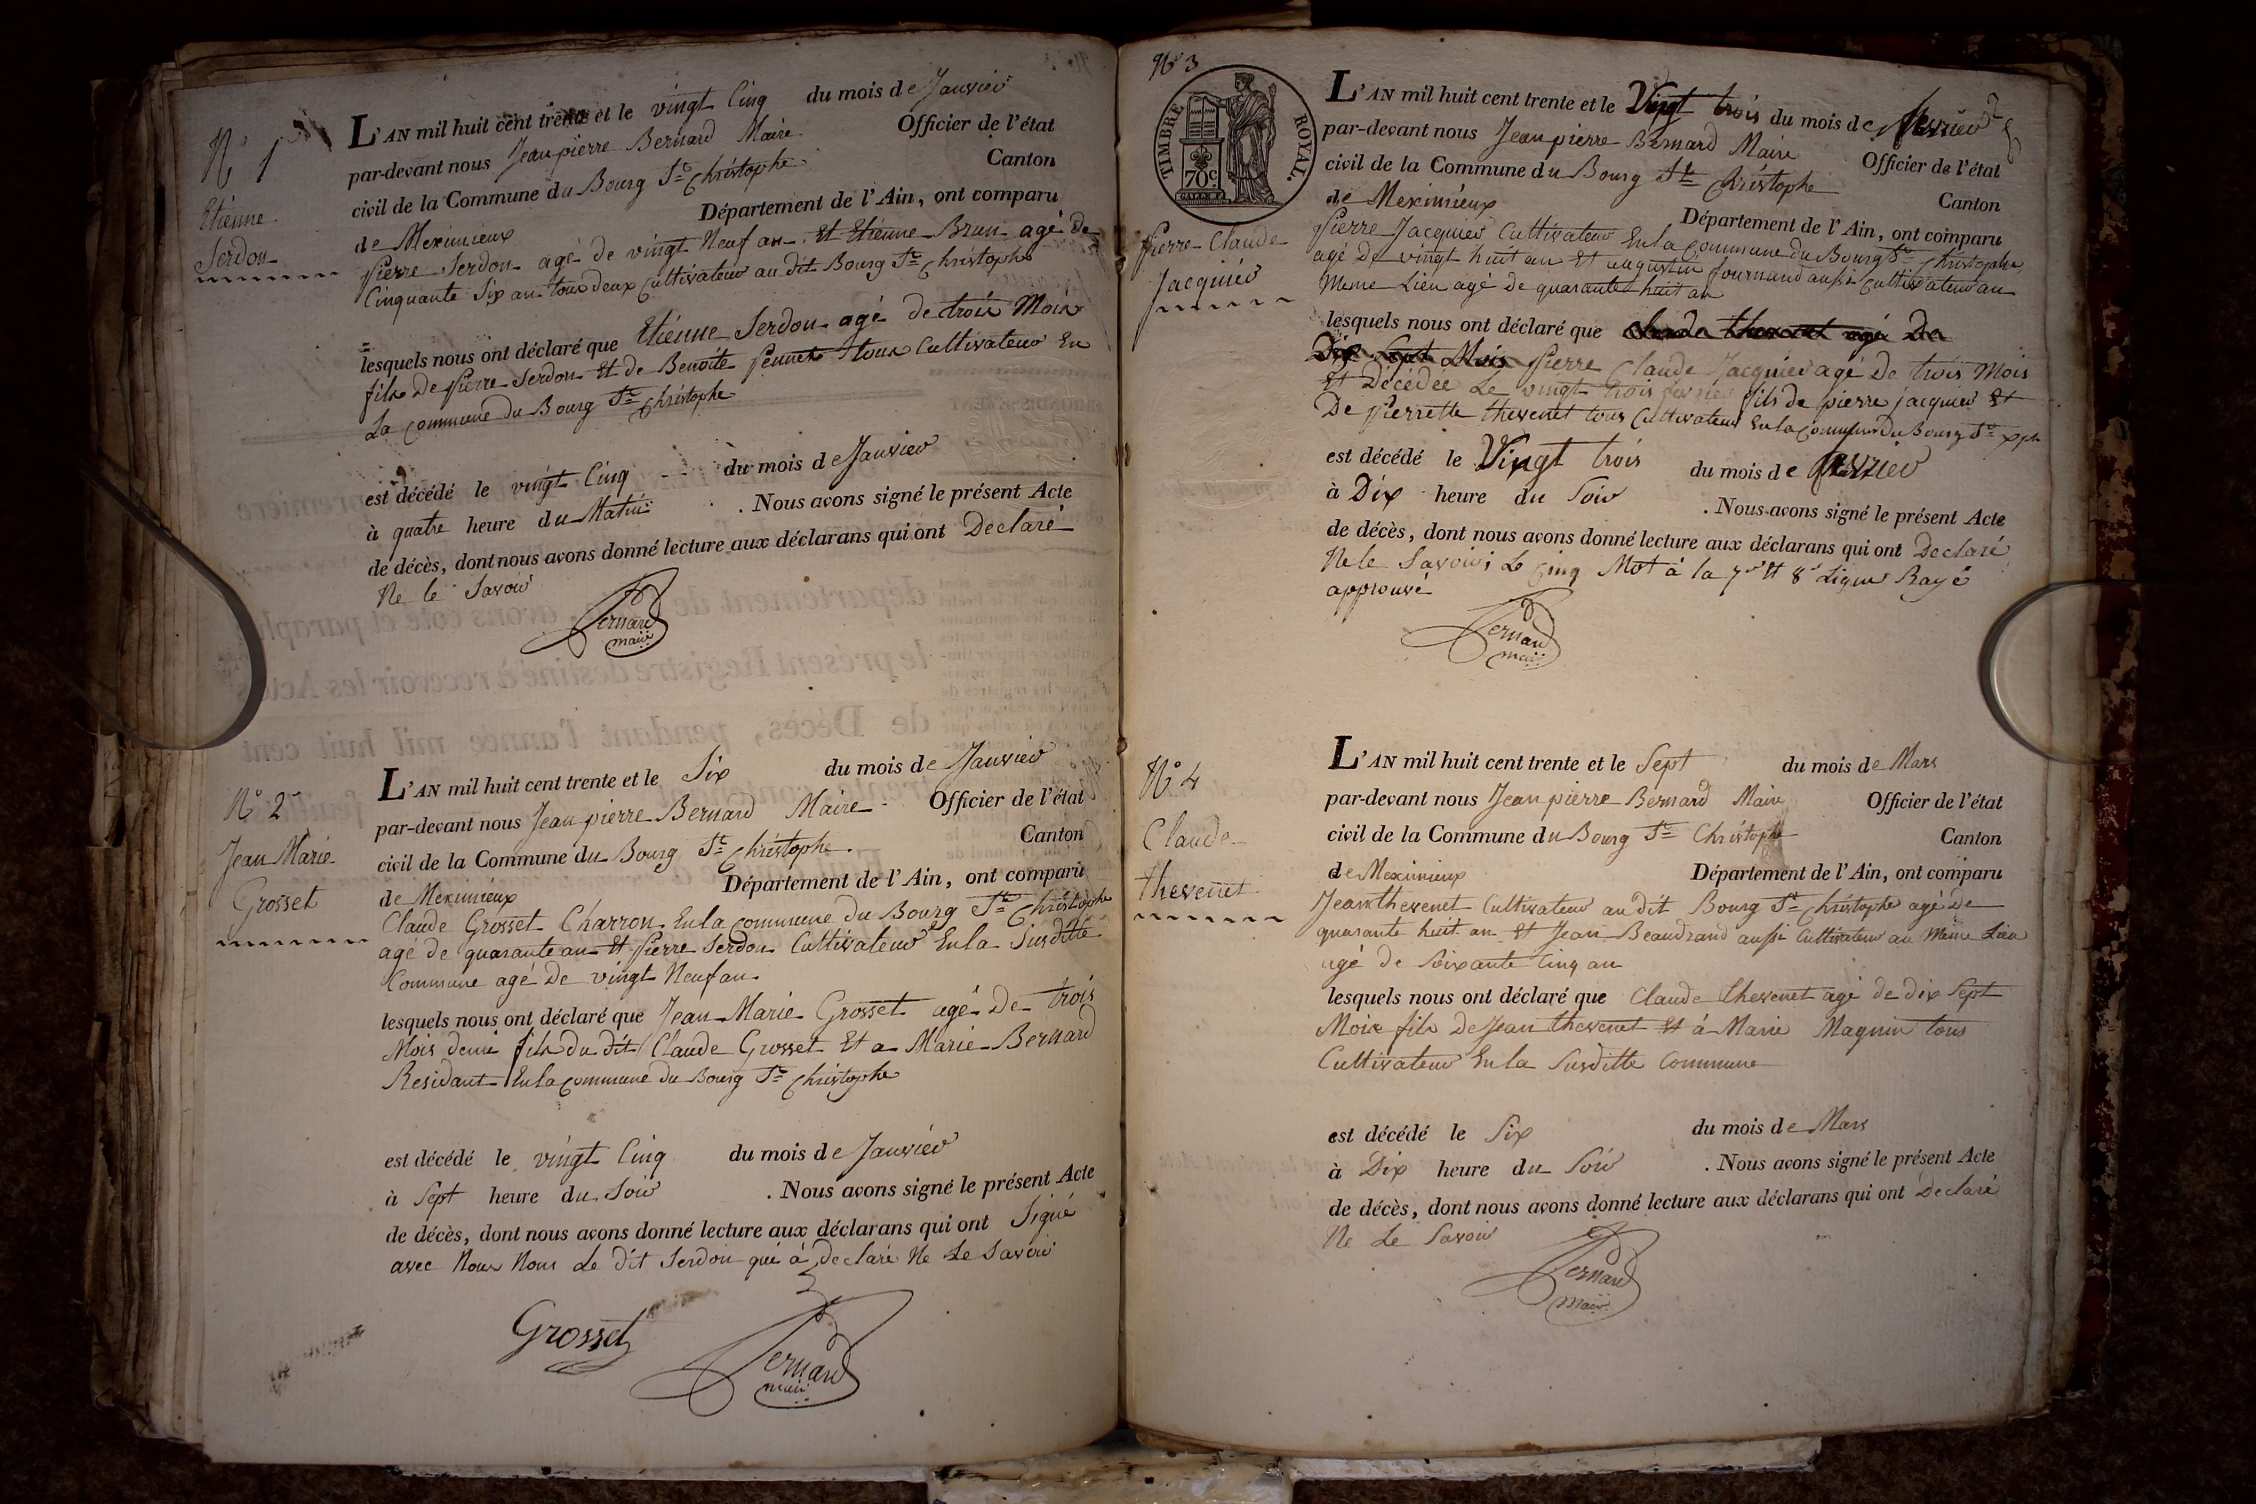 N° 1er
Etienne
Serdon
L'AN mil huit cent trente et le vingt Cinq du mois de Janvier
par-devant nous Jean pierre Bernard Maire Officier de l'état
civil de la Commune du Bourg St Christophe Canton
de Meximieux Département de l'Ain, ont comparu
Pierre Serdon agé de vingt Neuf an Et Etienne Brun agé de
Cinquante Six an tous deux Cultivateur au dit Bourg St Christophe
lesquels nous ont déclaré que Etienne Serdon agé de trois Mois
fils De Pierre Serdon Et de Benoite tous Cultivateur En
La commune du Bourg St Christophe
est décédé le vingt Cinq du mois de Janvier
à quatre heure du Matin . Nous avons signé le présent Acte
de décès, dont nous avons donné lecture aux déclarans qui ont Declaré
Ne le Savoir
Bernard
maire
N° 2
Jean Marie
Grosset
L'AN mil huit cent trente et le Six du mois de Janvier
par-devant nous Jean pierre Bernard Maire Officier de l'état
civil de la Commune du Bourg St Christophe Canton
de Meximieux Département de l'Ain, ont comparu
Claude Grosset Charron En la commune du Bourg St Christophe
agé de quarante an Et Pierre Serdon Cultivateur En la Susditte
Commune agé De vingt Neuf an
lesquels nous ont déclaré que Jean Marie Grosset agé De trois
Mois demi fils du dit Claude Grosset Et a Marie Bernard
Residant En la commune du Bourg St Christophe
est décédé le vingt Cinq du mois de Janvier
à Sept heure du Soir . Nous avons signé le présent Acte
de décès, dont nous avons donné lecture aux déclarans qui ont Signé
avec Nous Nom Le dit Serdon qui à declaré Ne Le Savoir
Grosset
Bernard
maire
N° 3
TIMBRE ROYAL.
70c
Pierre Claude
Jacquier
L'AN mil huit cent trente et le Vingt trois du mois de fevrier
par-devant nous Jean pierre Bernard Maire Officier de l'état
civil de la Commune du Bourg St Christophe Canton
de Meximieux Département de l'Ain, ont comparu
Pierre Jacquier Cultivateur En la Commune du Bourg St Christophe
agé De vingt huit an Et augustin fournand aussi Cultivateur au
Meme Lieu agé de quarante huit an
lesquels nous ont déclaré que Claude thevenet agé De
Dix Sept Mois Pierre Claude Jacquier agé De trois Mois
Et Décédée Le vingt trois fevrier fils de pierre jacquier Et
De Pierrette thevenet tous Cultivateur En la Commune du Bourg St xph
est décédé le Vingt trois du mois de fevrier
à Dix heure du Soir . Nous avons signé le présent Acte
de décès, dont nous avons donné lecture aux déclarans qui ont Declaré
Ne le Savoir; Le Cinq Mot à la 7e Et 8e Ligne Rayé
approuvé
Bernard
maire
N° 4
Claude
thevenet
L'AN mil huit cent trente et le Sept du mois de Mars
par-devant nous Jean pierre Bernard Maire Officier de l'état
civil de la Commune du Bourg St Christophe Canton
de Meximieux Département de l'Ain, ont comparu
Jean thevenet Cultivateur au dit Bourg St Christophe agé De
quarante huit an Et Jean Beaudrand aussi Cultivateur au Même Lieu
agé de Soixante Cinq an
lesquels nous ont déclaré que Claude thevenet agé de dix Sept
Mois fils De Jean thevenet Et à Marie Magnin tous
Cultivateur En la Susditte Commune
est décédé le Six du mois de Mars
à Dix heure du Soir . Nous avons signé le présent Acte
de décès, dont nous avons donné lecture aux déclarans qui ont Declaré
Ne Le Savoir
Bernard
Maire